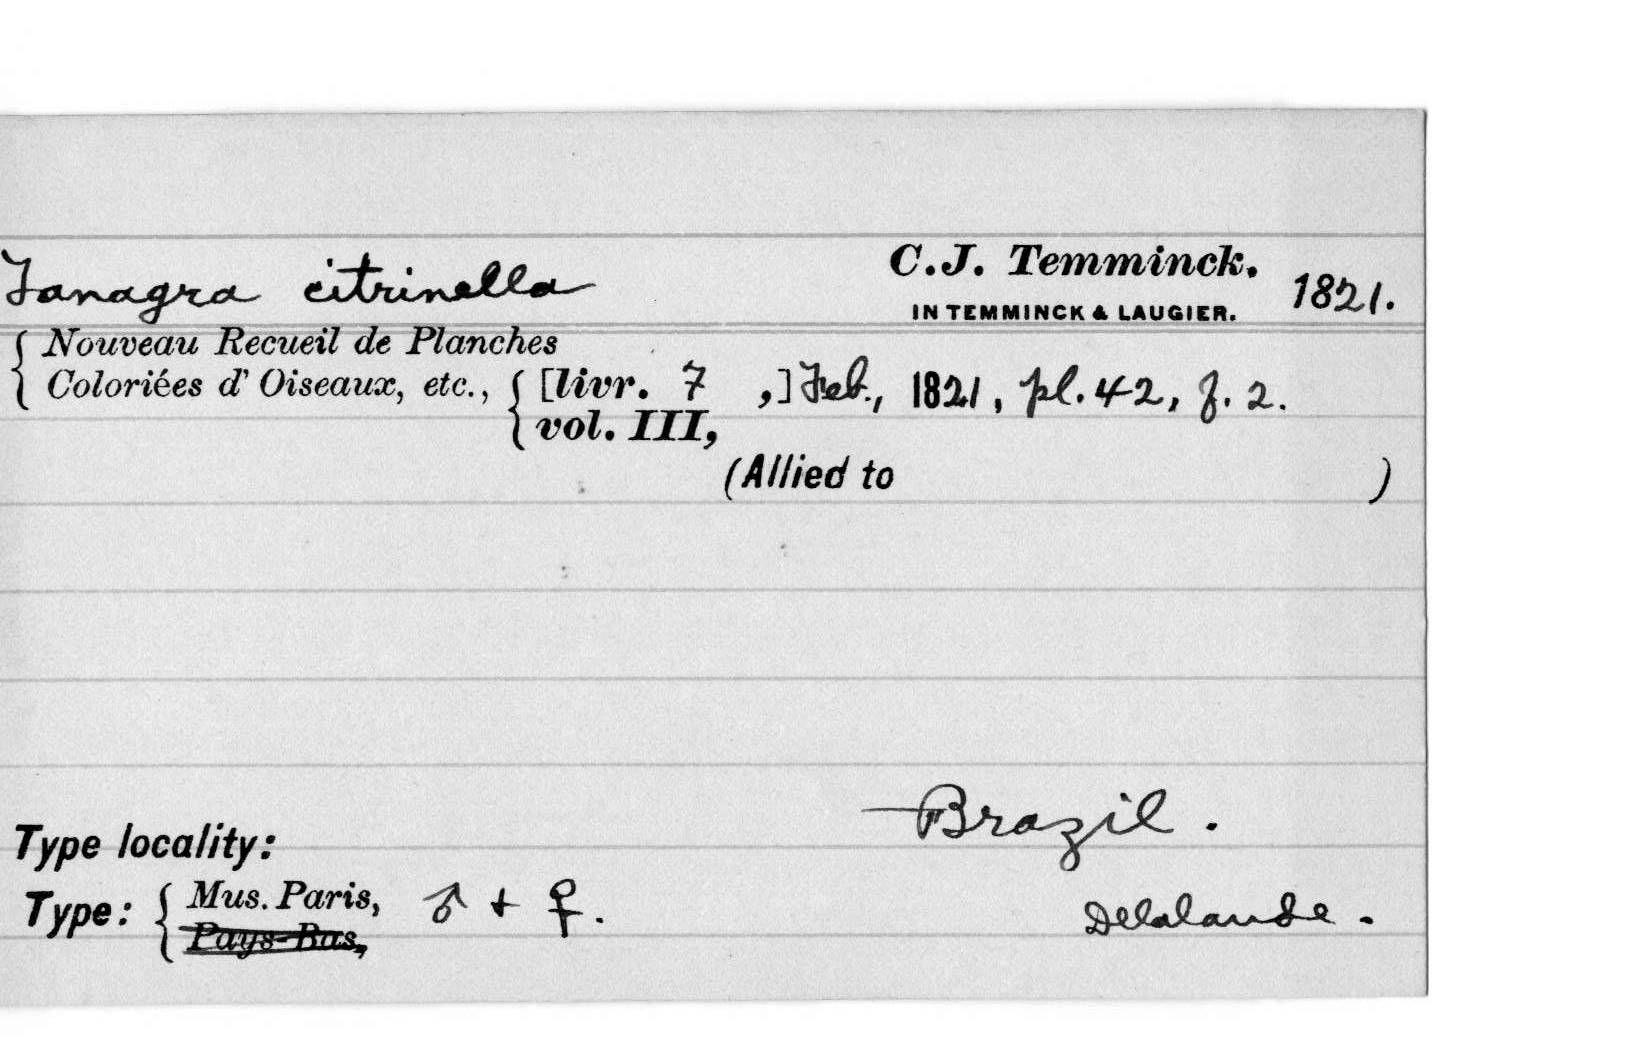 Tanagra citrinella C.J. Temminck. 1821.
IN TEMMINCK & LAUGIER.
{ Nouveau Recueil de Planches
Coloriées d' Oiseaux, etc., { [livr. 7 ,] Feb., 1821, pl. 42, f. 2.
vol. III,
(Allied to )
Type locality: Brazil.
Type: { Mus. Paris, ♂ + ♀. Delalande.
Pays-Bas,